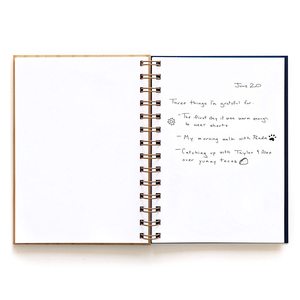 June 20
Three things I'm grateful for:
The first day it was warm enough
to wear shorts
- My morning walk with
- Catching up with Taylor &
over yummy tacos